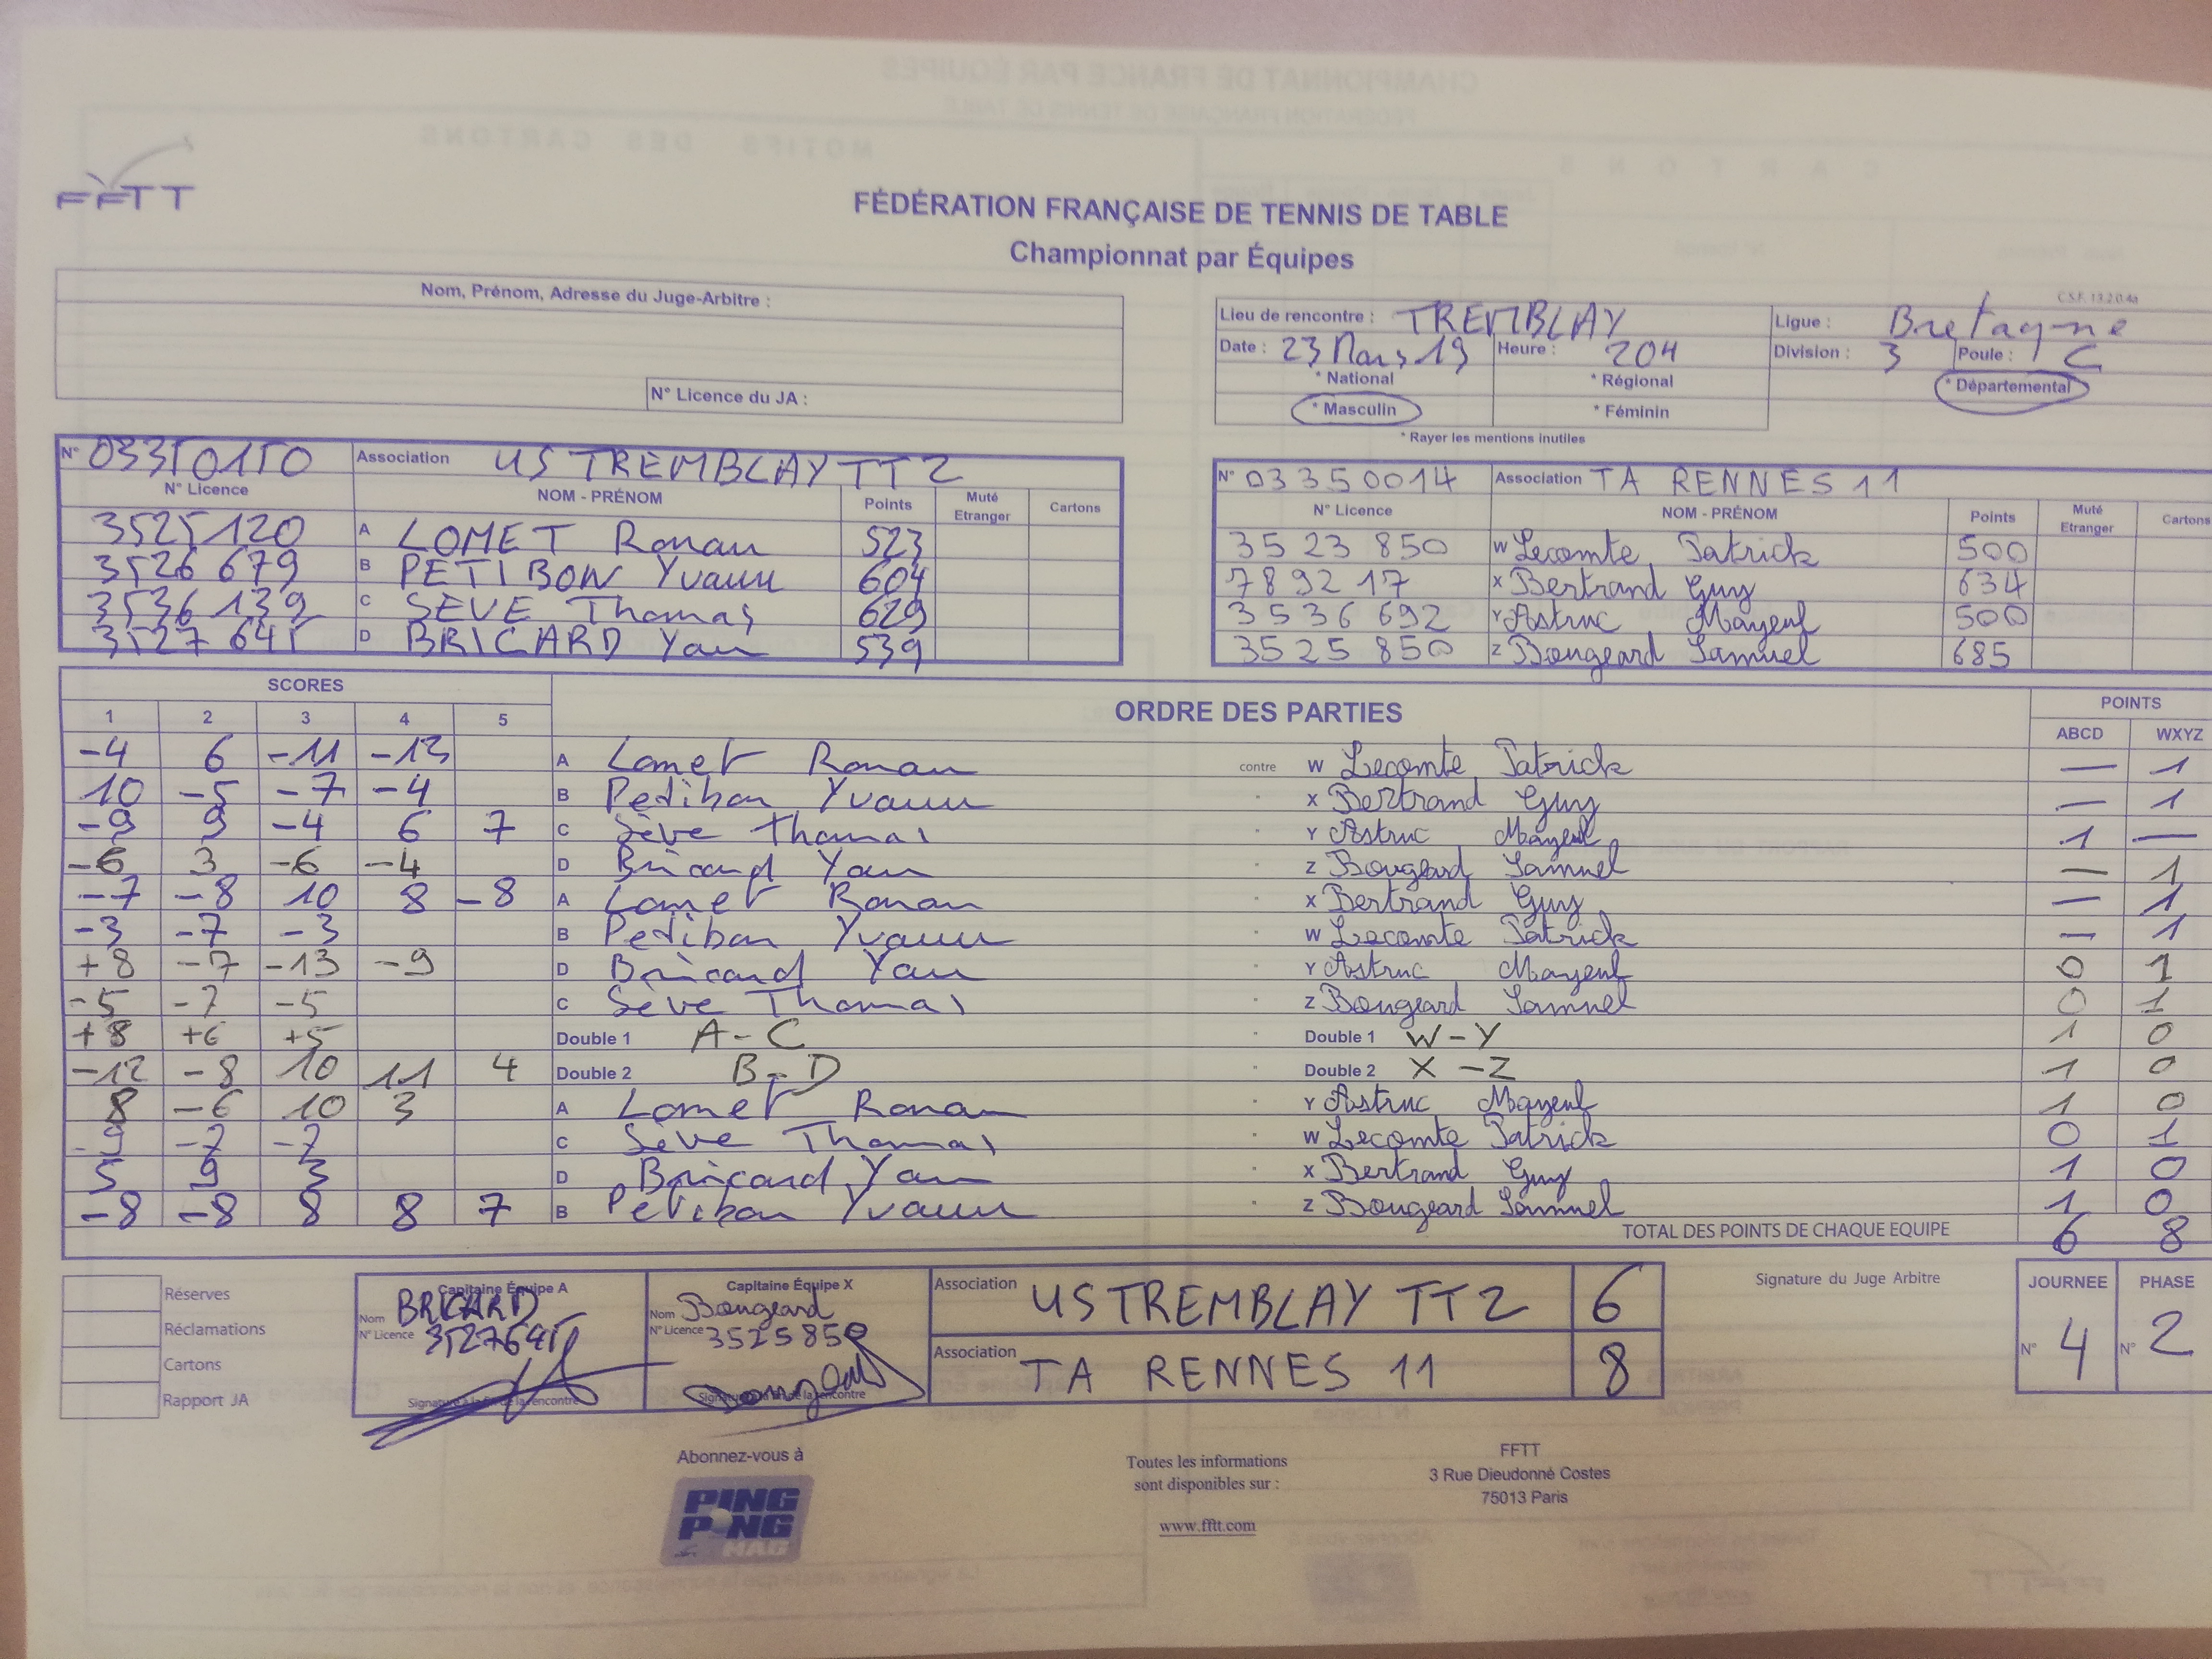 FFTT
FÉDÉRATION FRANÇAISE DE TENNIS DE TABLE
Championnat par Équipes
Nom, Prénom, Adresse du Juge-Arbitre :
N° Licence du JA :
C.S.F. 13.2.0.4a
Lieu de rencontre : TREMBLAY Ligue : Bretagne
Date : 23 Mars 19 Heure : 20H Division : 3 Poule : C
* National * Régional * Départemental
* Masculin * Féminin
* Rayer les mentions inutiles
N° 03350150 Association US TREMBLAY TT 2
N° Licence NOM - PRÉNOM Points Muté Etranger Cartons
3525120 A LOMET Ronan 523
3526 679 B PETIBON Yvann 604
3536 139 C SEVE Thomas 629
3527 645 D BRICARD Yan 539
N° 03350014 Association TA RENNES 11
N° Licence NOM - PRÉNOM Points Muté Etranger Cartons
35 23 850 W Lecomte Patrick 500
7892 17 X Bertrand Guy 634
3536 692 Y Astruc Mayeul 500
3525 850 Z Bougeard Samuel 685
SCORES ORDRE DES PARTIES POINTS
1 2 3 4 5 ABCD WXYZ
-4 6 -11 -13 A Lomet Ronan contre W Lecomte Patrick — 1
10 -5 -7 -4 B Petibon Yvann X Bertrand Guy — 1
-9 9 -4 6 7 C Sève Thomas Y Astruc Mayeul 1 —
-6 3 -6 -4 D Bricard Yan Z Bougeard Samuel — 1
-7 -8 10 8 -8 A Lomet Ronan X Bertrand Guy — 1
-3 -7 -3 B Petibon Yvann W Lecomte Patrick — 1
+8 -7 -13 -9 D Bricard Yan Y Astruc Mayeul 0 1
-5 -7 -5 C Sève Thomas Z Bougeard Samuel 0 1
+8 +6 +5 Double 1 A-C Double 1 W-Y 1 0
-12 -8 10 11 4 Double 2 B-D Double 2 X-Z 1 0
8 -6 10 3 A Lomet Ronan Y Astruc Mayeul 1 0
-9 -7 -7 C Sève Thomas W Lecomte Patrick 0 1
5 9 3 D Bricard Yan X Bertrand Guy 1 0
-8 -8 8 8 7 B Petibon Yvann Z Bougeard Samuel 1 0
TOTAL DES POINTS DE CHAQUE EQUIPE 6 8
Réserves
Réclamations
Cartons
Rapport JA
Capitaine Équipe A
Nom BRICARD
N° Licence 3527645
Signature à la fin de la rencontre
Capitaine Équipe X
Nom Bougeard
N° Licence 3525850
Signature à la fin de la rencontre
Association US TREMBLAY TT 2 6
Association TA RENNES 11 8
Signature du Juge Arbitre
JOURNEE PHASE
N° 4 N° 2
Abonnez-vous à
PING PONG MAG
Toutes les informations
sont disponibles sur :
www.fftt.com
FFTT
3 Rue Dieudonné Costes
75013 Paris